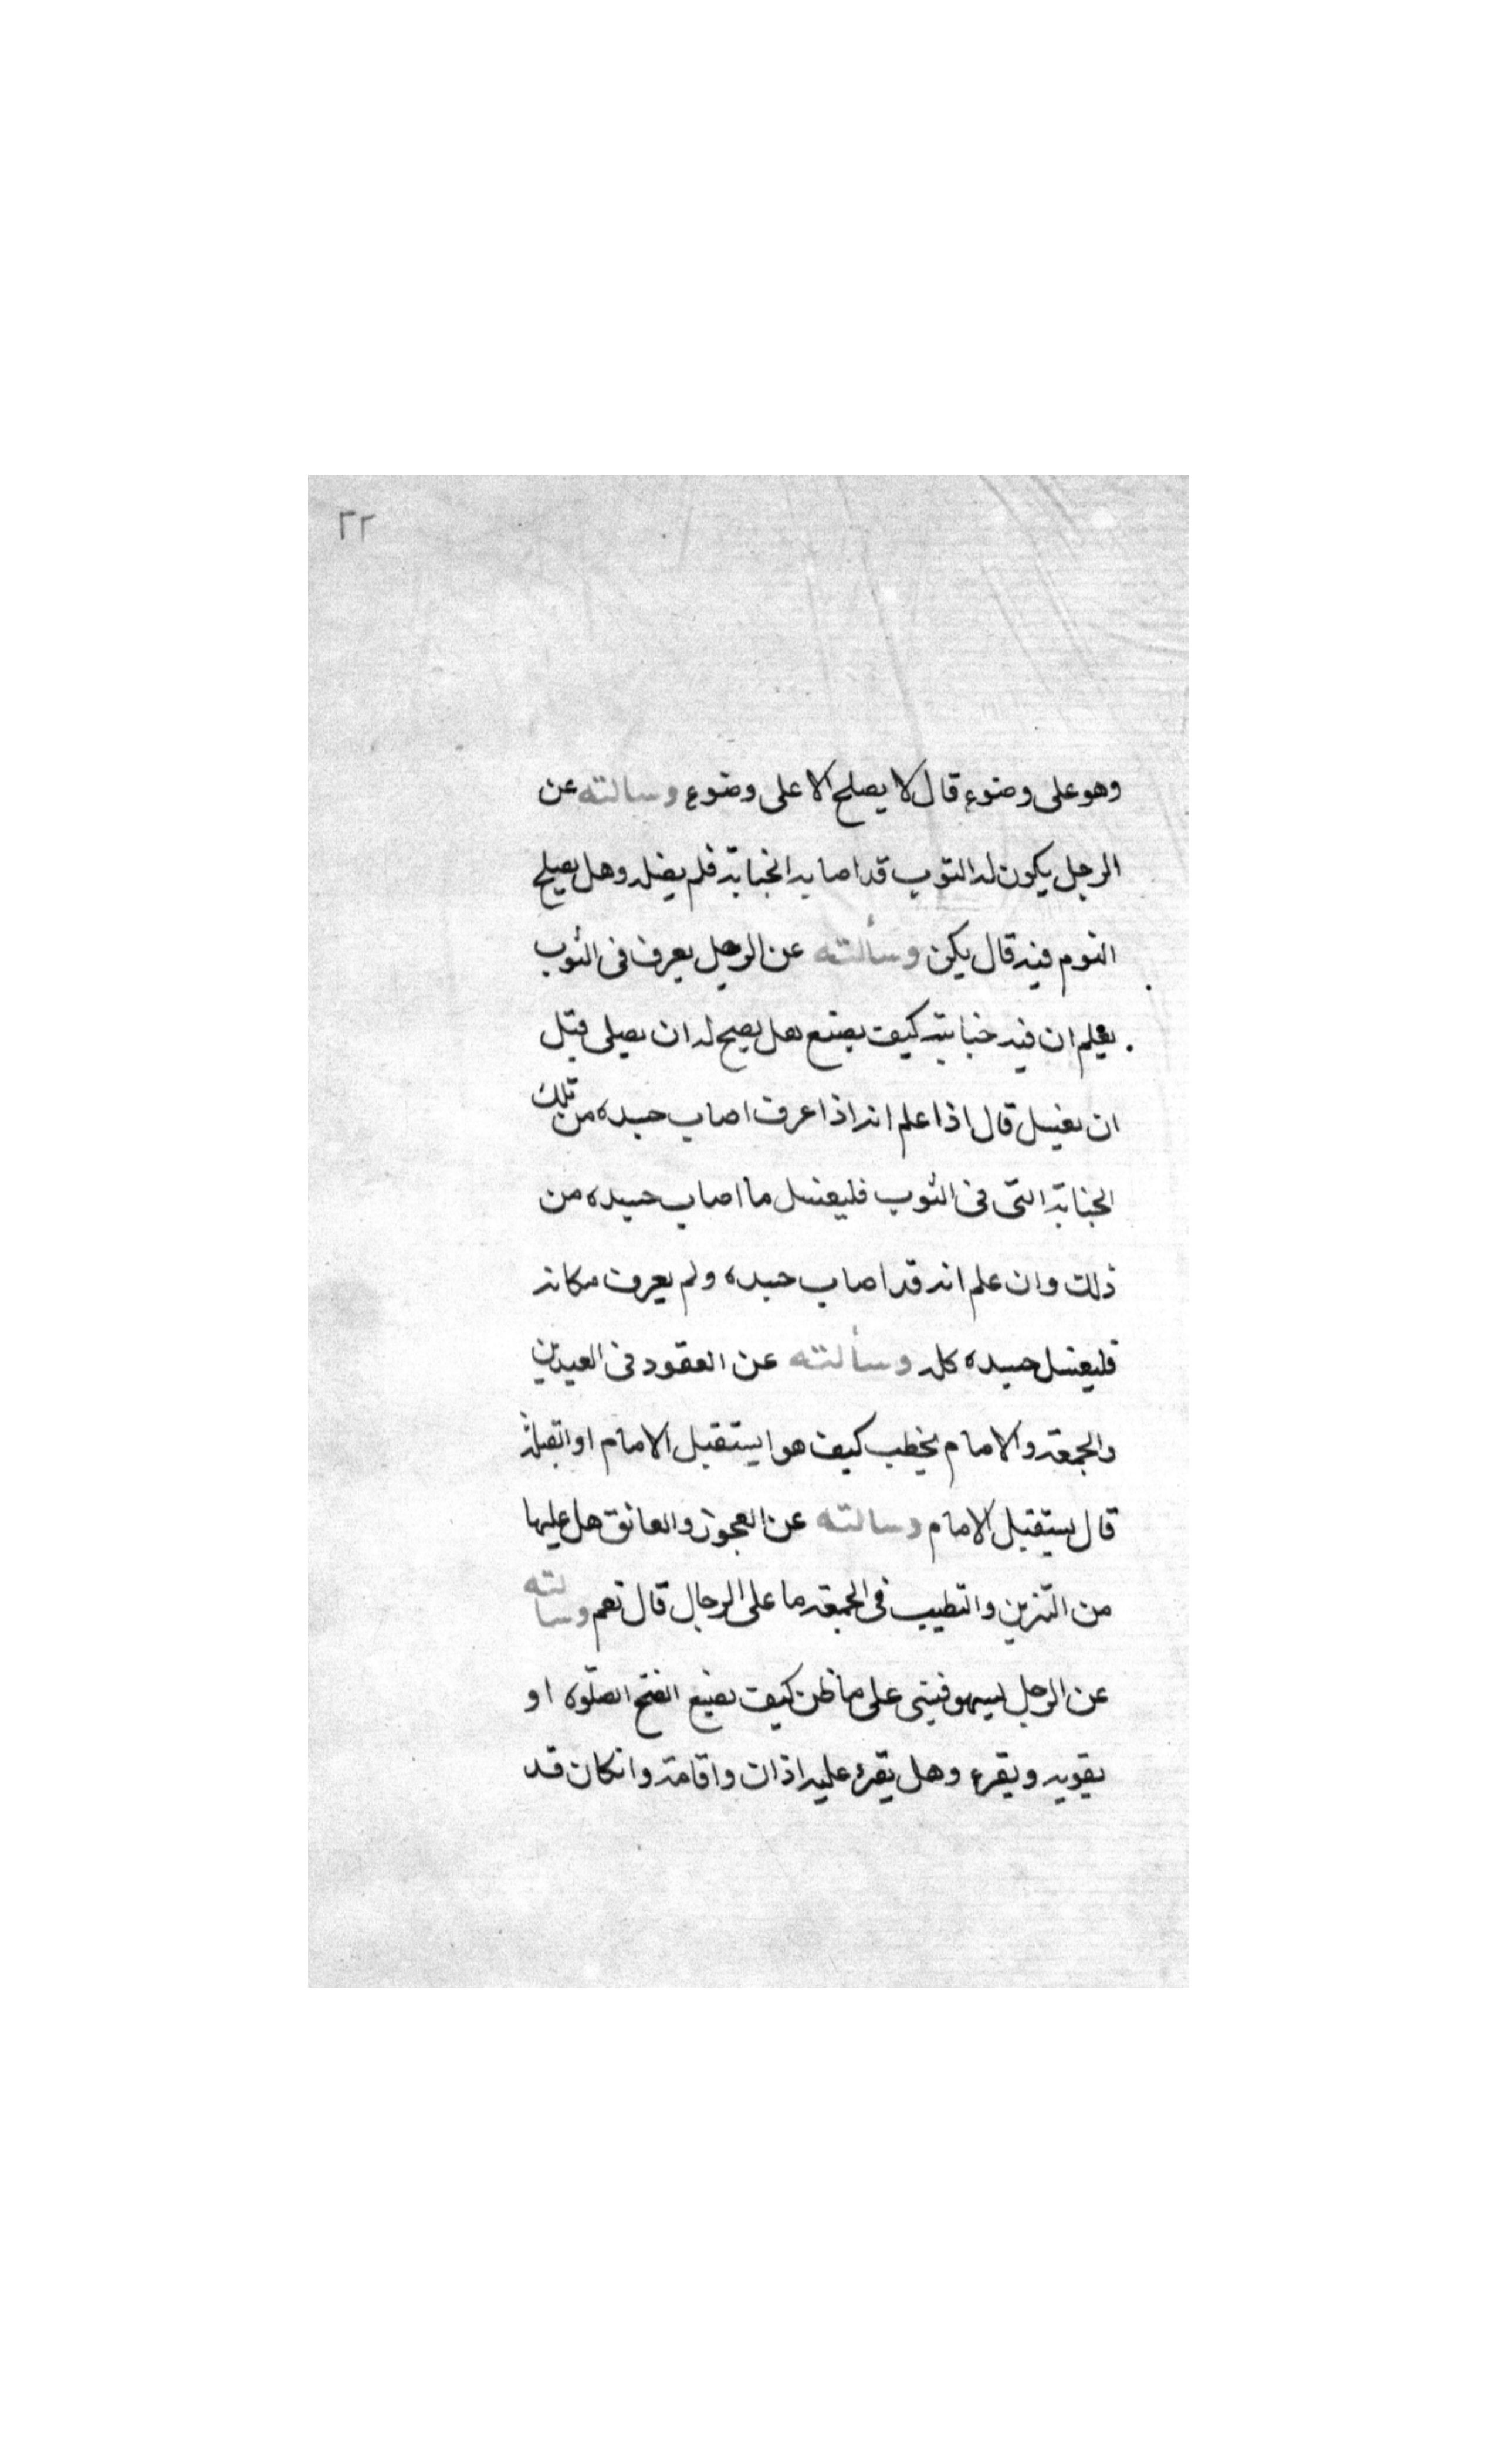 ٢٢
وهو على وضوء قال لا يصلح الا على وضوء وسالته عن
الرجل يكون له الثوب قد اصابه الجنابة فلم يغسله وهل يصلح
النوم فيه قال يكره وسألته عن الرجل يعرق فى الثوب
يعلم ان فيه جنابته كيف يصنع هل يصح له ان يصلى قبل
ان يغسل قال اذا علم انه اذا عرق اصاب جسده من تلك
الجنابة التى فى الثوب فليغسل ما اصاب جسده من
ذلك وان علم انه قد اصاب جسده ولم يعرف مكانه
فليغسل جسده كله وسألته عن القعود فى العيدين
والجمعة والامام يخطب كيف هو ايستقبل الامام او القبلة
قال يستقبل الامام وسالته عن العجوز والعاتق هل عليها
من التزين والتطيب فى الجمعة ما على الرجال قال نعم وسالته
عن الرجل ليسهو فيبنى على ما ظن كيف يصنع افتح الصلوة او
يقويه ويقرء وهل يقرء عليه اذان واقامة وانكان قد